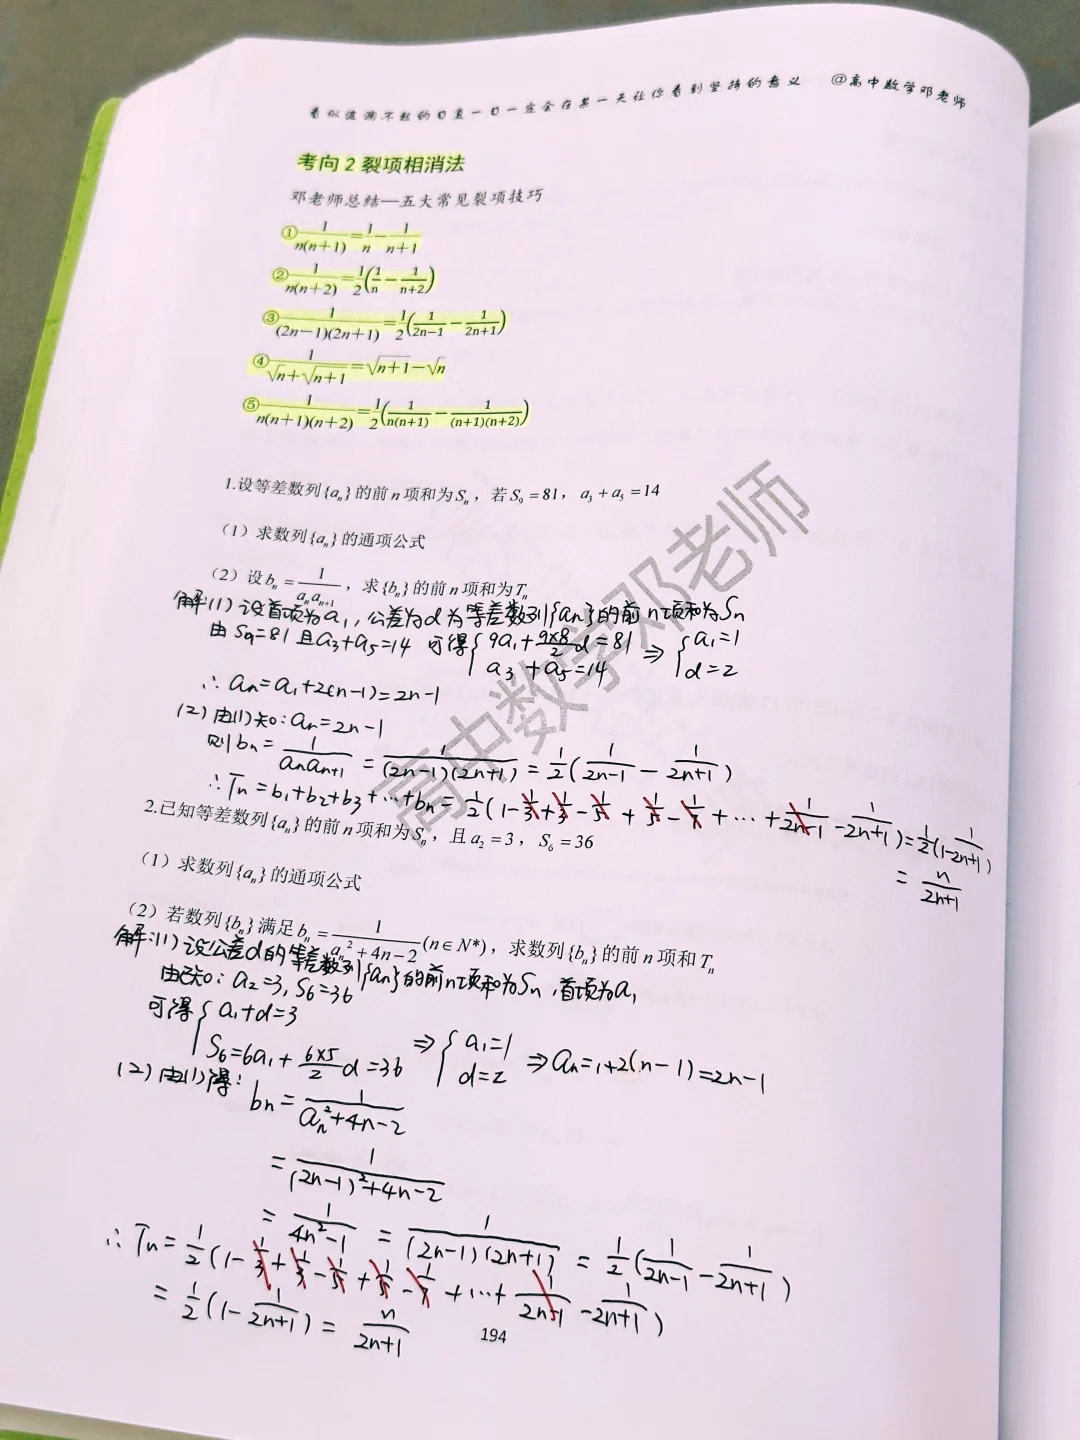 看似波澜不起的日复一日一定会在某一天让你看到坚持的意义 @高中数学邓老师
考向2裂项相消法
邓老师总结—五大常见裂项技巧
①1/(n(n+1))=1/n-1/(n+1)
②1/(n(n+2))=1/2(1/n-1/(n+2))
③1/((2n-1)(2n+1))=1/2(1/(2n-1)-1/(2n+1))
④1/(√n+√(n+1))=√(n+1)-√n
⑤1/(n(n+1)(n+2))=1/2(1/(n(n+1))-1/((n+1)(n+2)))
1.设等差数列{aₙ}的前n项和为Sₙ，若S₉=81，a₃+a₅=14
（1）求数列{aₙ}的通项公式
（2）设bₙ=1/(aₙaₙ₊₁)，求{bₙ}的前n项和为Tₙ
解:(1)设首项为a₁,公差为d为等差数列{an}的前n项和为Sn
由S₉=81且a₃+a₅=14 可得{9a₁+(9×8)/2 d=81 ⇒ {a₁=1
a₃+a₅=14 d=2
∴an=a₁+2(n-1)=2n-1
(2)由(1)知:an=2n-1
则bn=1/(anan+1)=1/((2n-1)(2n+1))=1/2(1/(2n-1)-1/(2n+1))
∴Tn=b₁+b₂+b₃+…+bn=1/2(1-1/3+1/3-1/5+1/5-1/7+…+1/(2n-1)-1/(2n+1))=1/2(1-1/(2n+1))
=n/(2n+1)
2.已知等差数列{aₙ}的前n项和为Sₙ，且a₂=3，S₆=36
（1）求数列{aₙ}的通项公式
（2）若数列{bₙ}满足bₙ=1/(aₙ²+4n-2)(n∈N*)，求数列{bₙ}的前n项和Tₙ
解:(1)设公差d的等差数列{an}的前n项和为Sn,首项为a₁
由已知:a₂=3,S₆=36
可得{a₁+d=3
S₆=6a₁+(6×5)/2 d=36 ⇒ {a₁=1 d=2 ⇒an=1+2(n-1)=2n-1
(2)由(1)得:bn=1/(an²+4n-2)
=1/((2n-1)²+4n-2)
=1/(4n²-1)=1/((2n-1)(2n+1))=1/2(1/(2n-1)-1/(2n+1))
∴Tn=1/2(1-1/3+1/3-1/5+1/5-1/7+…+1/(2n-1)-1/(2n+1))
=1/2(1-1/(2n+1))=n/(2n+1)
194
高中数学邓老师